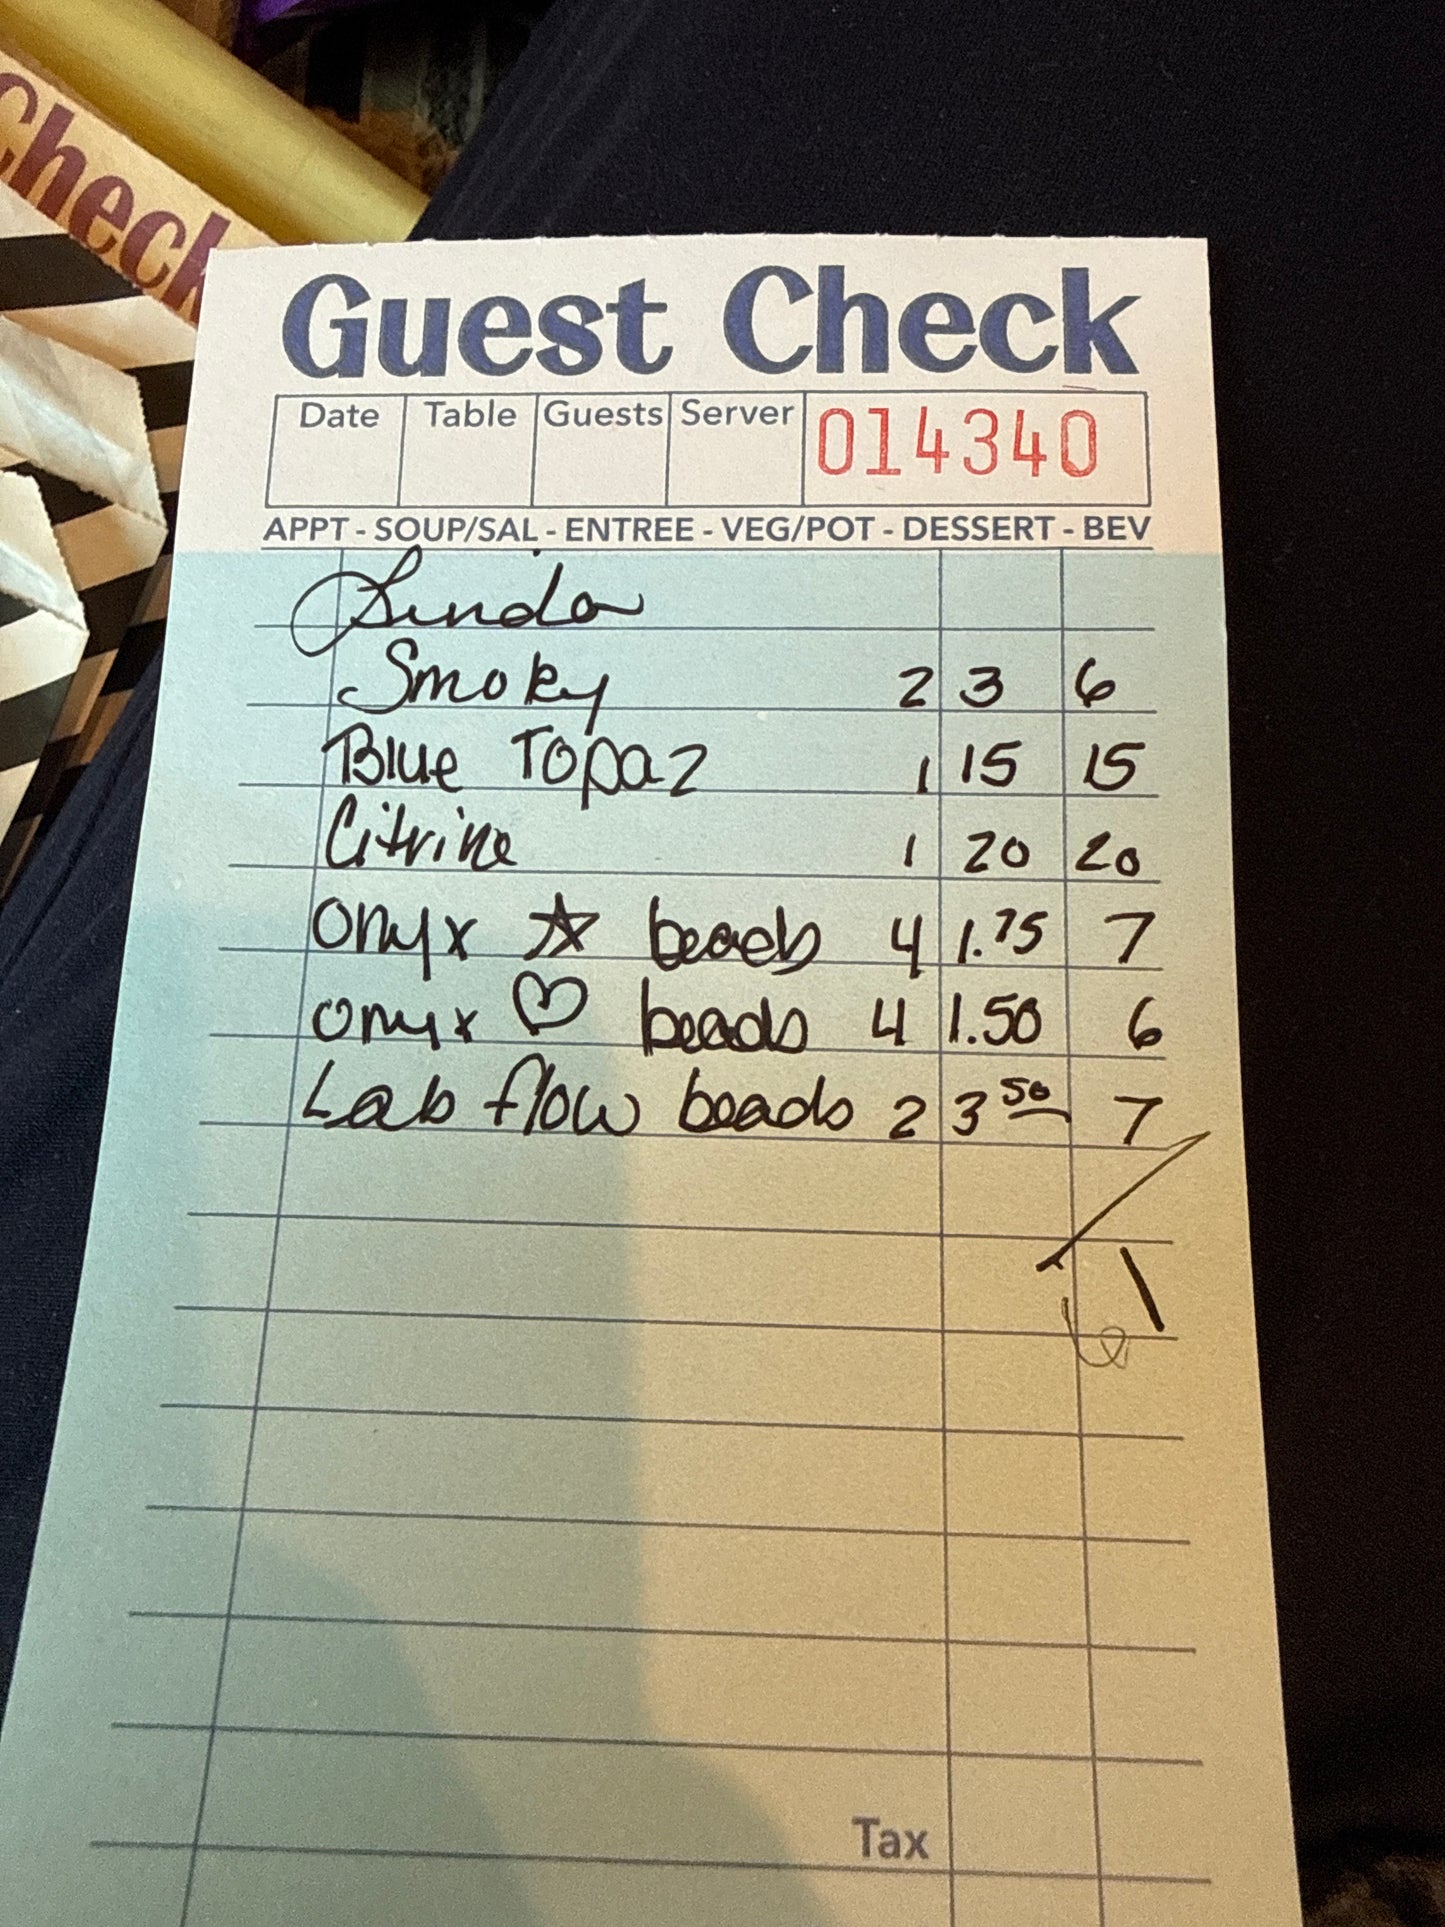 Check
Guest Check
Date Table Guests Server 014340
APPT - SOUP/SAL - ENTREE - VEG/POT - DESSERT - BEV
Linda
Smoky 2 3 6
Blue Topaz 1 15 15
Citrine 1 20 20
Onyx ☆ beads 4 1.75 7
onyx ♡ beads 4 1.50 6
Lab flow beads 2 3 50 7
61
Tax